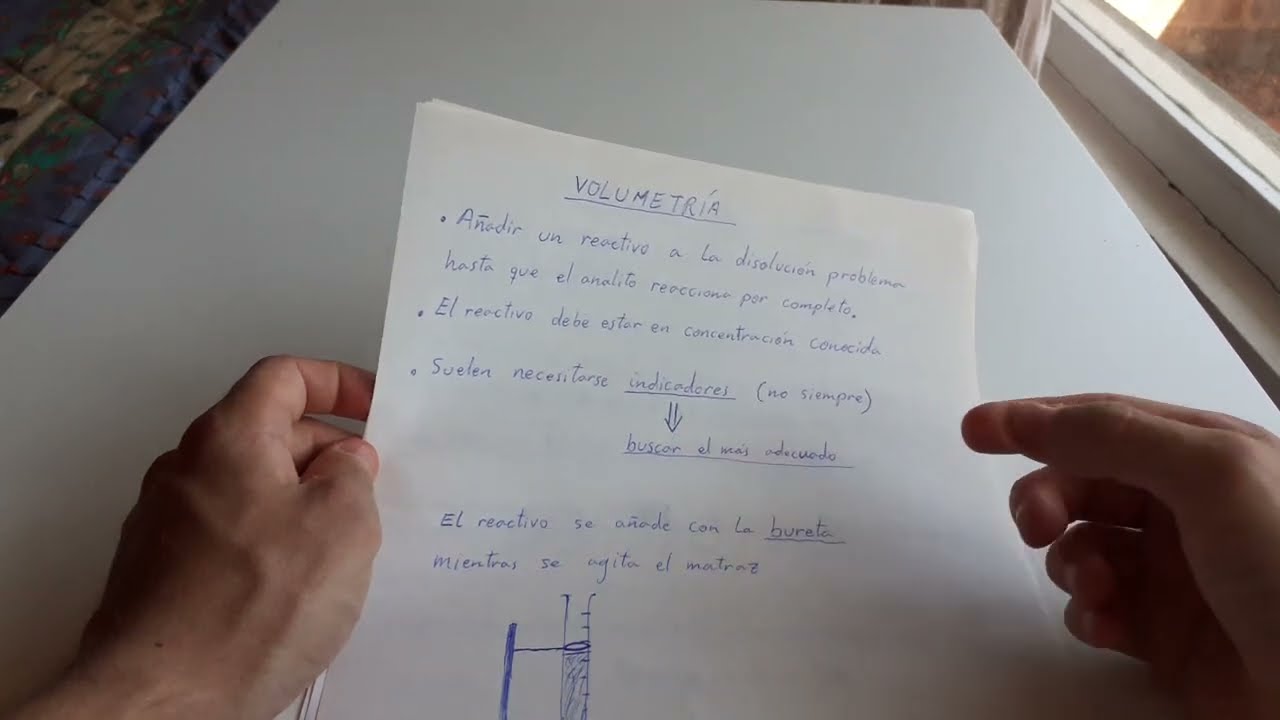 VOLUMETRÍA
• Añadir un reactivo a la disolución problema
hasta que el analito reacciona por completo.
• El reactivo debe estar en concentración conocida
• Suelen necesitarse indicadores (no siempre)
⇓
buscar el más adecuado
El reactivo se añade con la bureta
mientras se agita el matraz